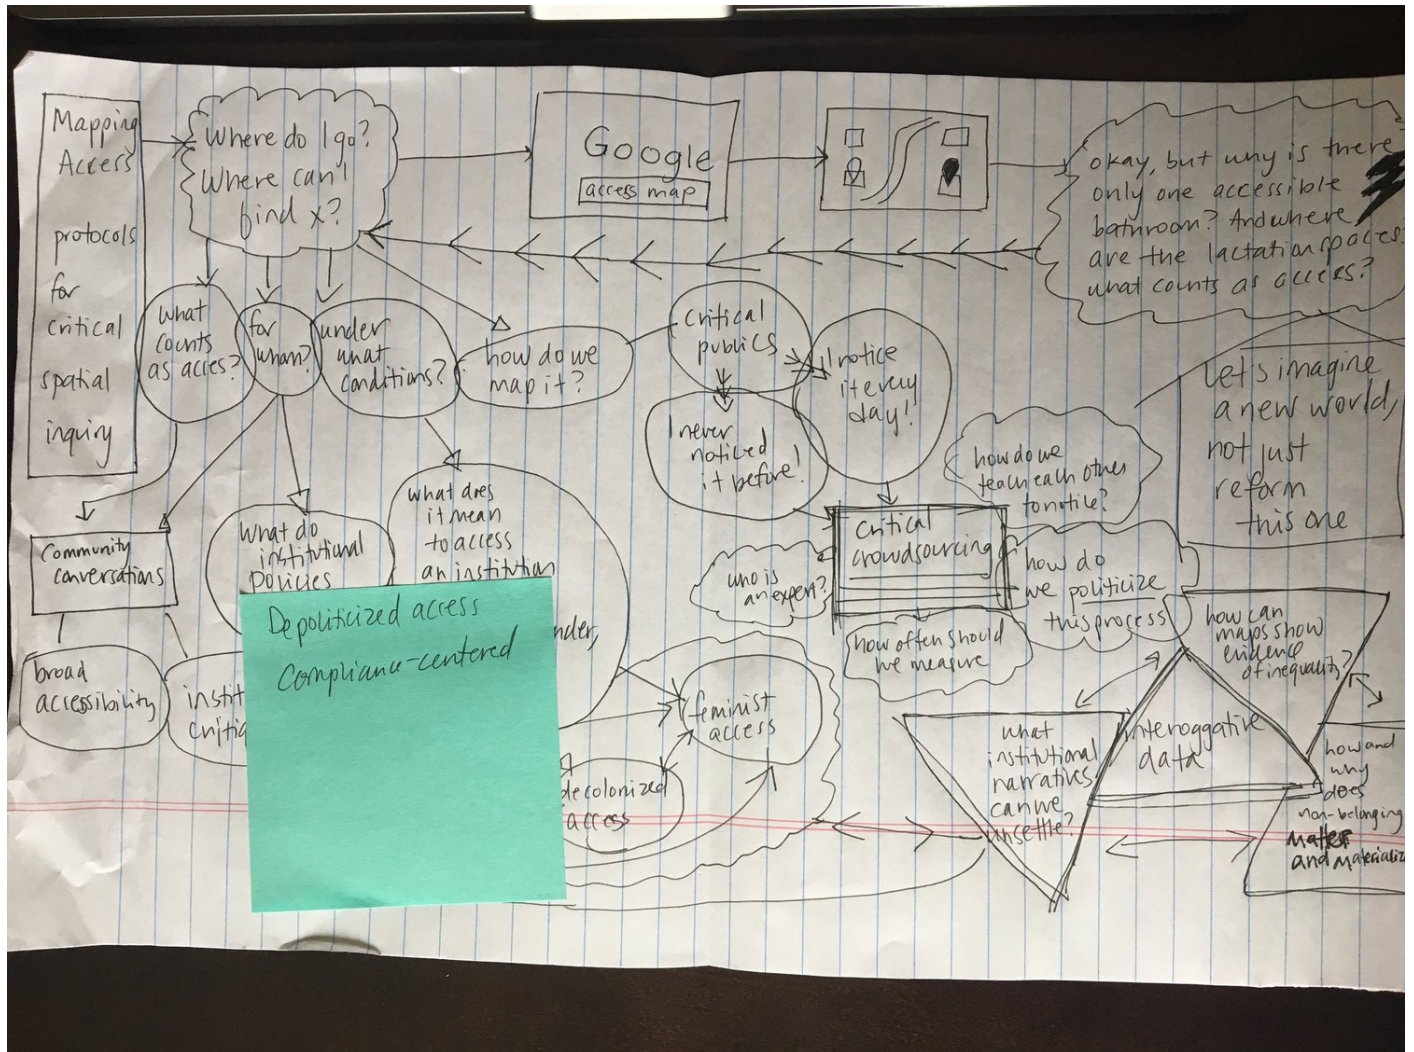 Mapping
Access
protocols
for
critical
spatial
inquiry
Where do I go?
Where can I
find x?
Google
access map
okay, but why is there
only one accessible
bathroom? And where
are the lactation spaces?
what counts as access?
what
counts
as acces?
for
whom?
under
what
conditions?
how do we
map it?
critical
publics
I notice
it every
day!
I never
noticed
it before!
Let's imagine
a new world,
not just
reform
this one
how do we
teach each other
to notice?
Critical
crowdsourcing
who is
an expert?
how do
we politicize
this process
how often should
we measure
Community
conversations
What do
institutional
policies
what does
it mean
to access
an institution
nder,
broad
accessibility
instit
critiq
Depoliticized access
Compliance-centered
feminist
access
decolonized
access
how can
maps show
evidence
of inequality?
interoggative
data
what
institutional
narratives
can we
unsettle?
how and
why
does
non-belonging
matter
and materializ